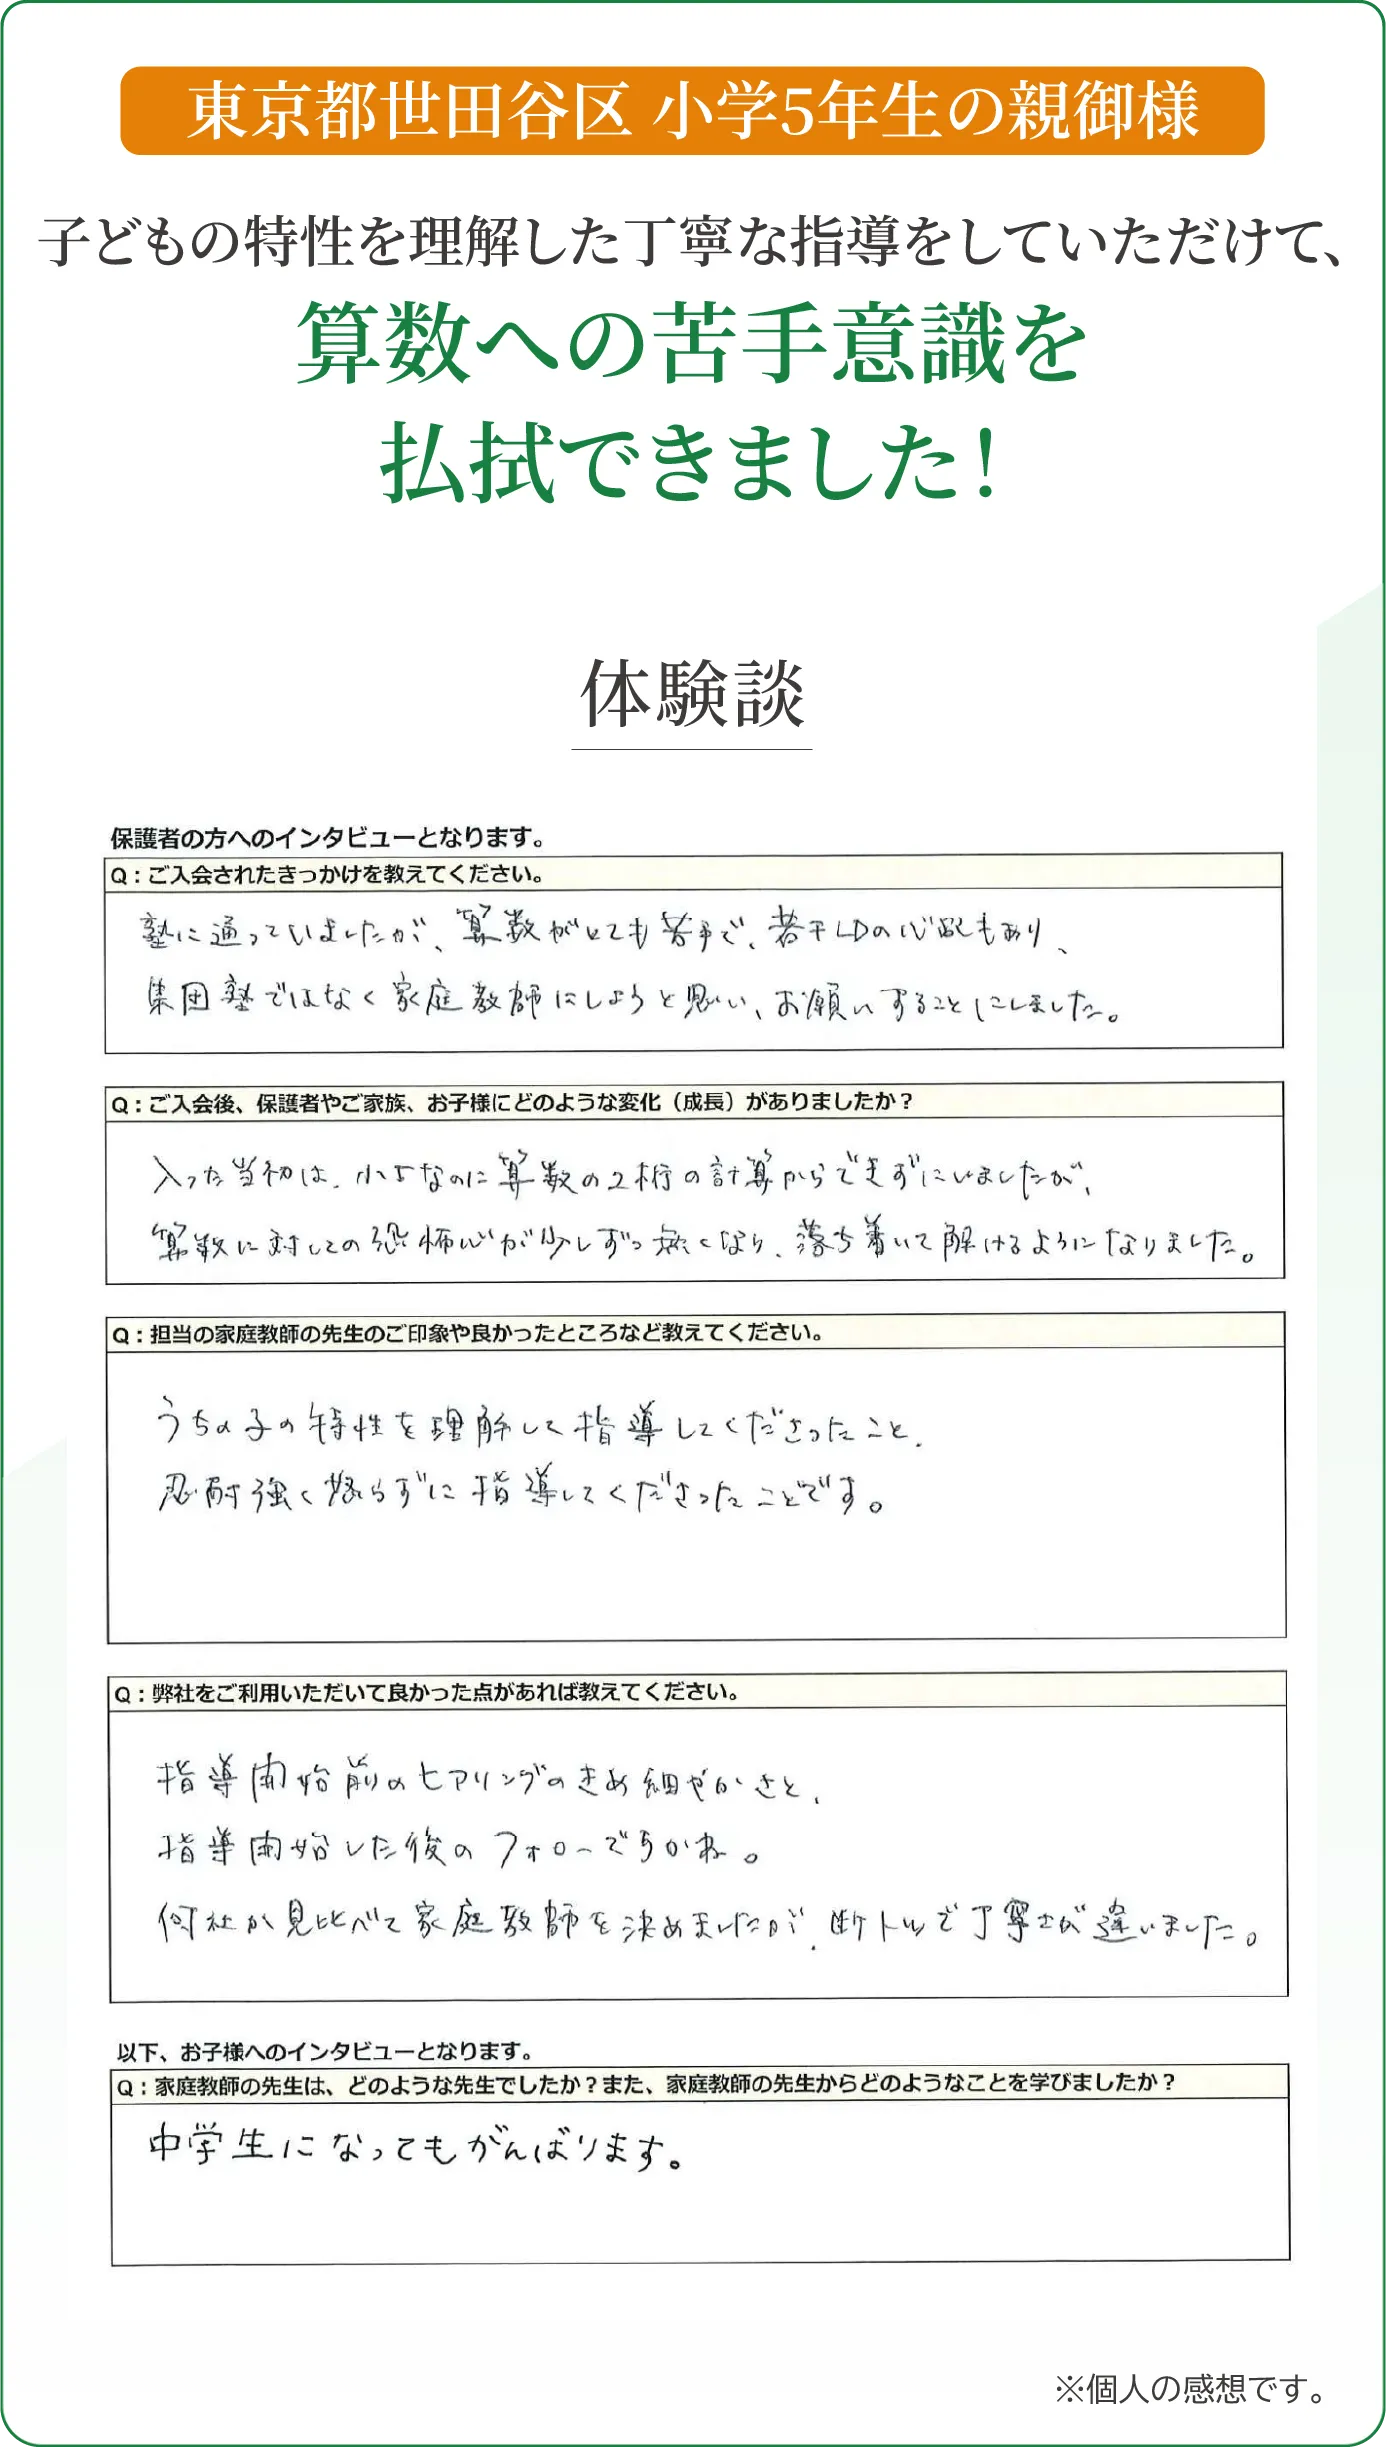 東京都世田谷区 小学5年生の親御様
子どもの特性を理解した丁寧な指導をしていただけて、
算数への苦手意識を
払拭できました!
体験談
保護者の方へのインタビューとなります。
Q：ご入会されたきっかけを教えてください。
塾に通っていましたが、算数がとても苦手で、若干LDの心配もあり、
集団塾ではなく家庭教師にしようと思い、お願いすることにしました。
Q：ご入会後、保護者やご家族、お子様にどのような変化（成長）がありましたか？
入った当初は、小5なのに算数の2桁の計算からできずにいましたが、
算数に対しての恐怖心が少しずつ無くなり、落ち着いて解けるようになりました。
Q：担当の家庭教師の先生のご印象や良かったところなど教えてください。
うちの子の特性を理解して指導してくださったこと、
忍耐強く怒らずに指導してくださったことです。
Q：弊社をご利用いただいて良かった点があれば教えてください。
指導開始前のヒアリングのきめ細やかさと、
指導開始した後のフォローですかね。
何社か見比べて家庭教師を決めましたが、断トツで丁寧さが違いました。
以下、お子様へのインタビューとなります。
Q：家庭教師の先生は、どのような先生でしたか？また、家庭教師の先生からどのようなことを学びましたか？
中学生になってもがんばります。
※個人の感想です。